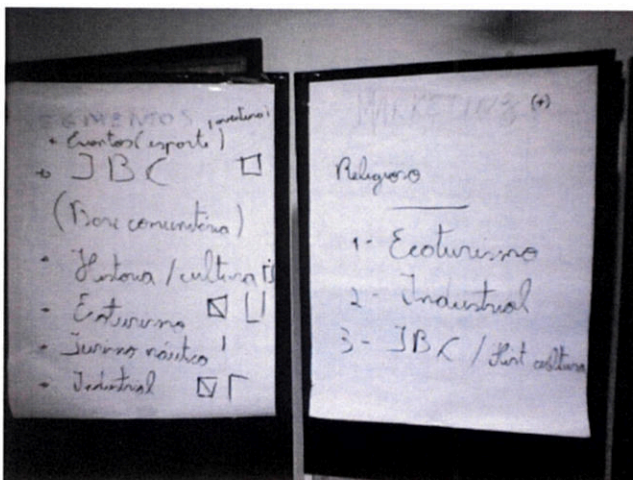 SEGMENTOS
• Eventos (esporte) / aventura
• TBC
(Base comunitária)
• Historia / cultural
• Ecoturismo
• Turismo náutico
• Industrial
MARKETING (+)
Religioso
1- Ecoturismo
2- Industrial
3- TBC / Hist cultura